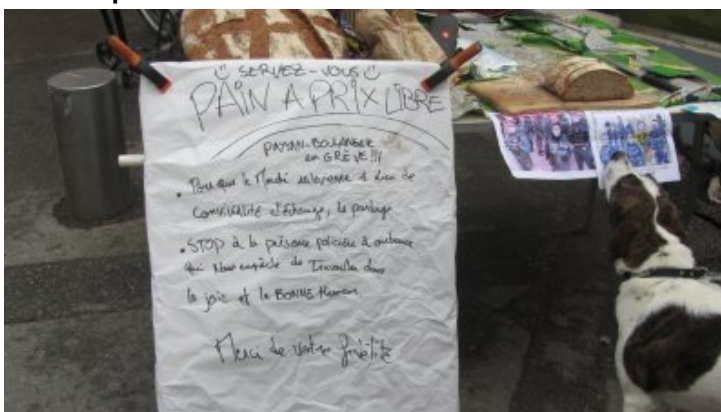 SERVEZ-VOUS
PAIN A PRIX LIBRE
PAYSAN-BOULANGER
en GRÈVE !!!
• Pour que le Marché redevienne 1 lieu de
Convivialité d'échange, de partage
• STOP à la présence policière à outrance
qui Nous empêche de Travailler dans
la joie et la BONNE Humeur
Merci de votre fidélité